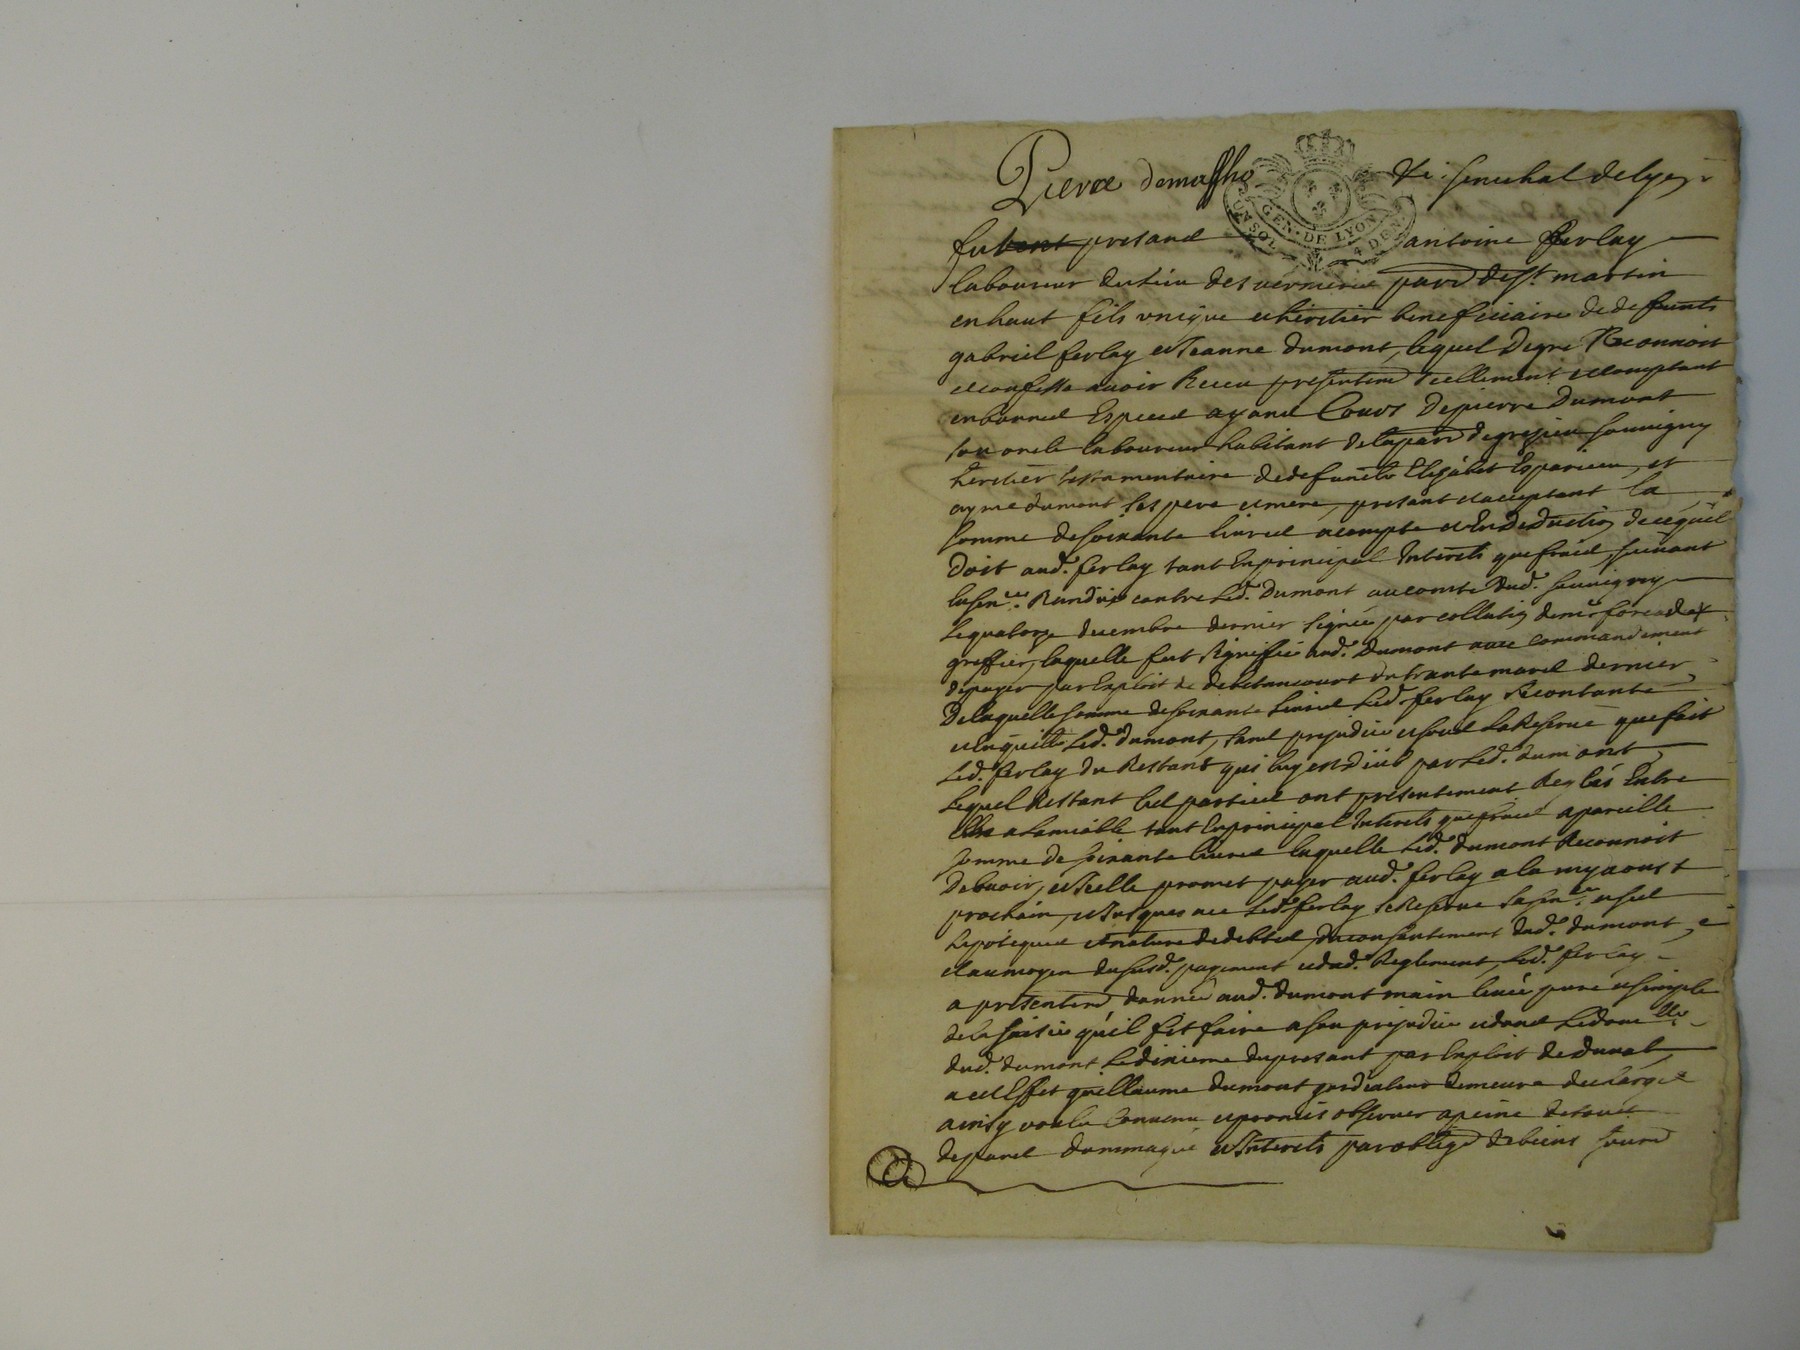 Pierre demasso &c senechal de lyon
GEN · DE LYON
UN SOL 4 DEN
fut present antoine ferlay
laboureur du lieu des vermeries parr de st martin
en haut fils vnique et heritier beneficiaire de defunts
gabriel ferlay et Jeanne dumont, lequel De gre Reconnoit
et confesse auoir Receu presentemt reellement et comptant
en bonnes Especes ayant Cours De pierre Dumont
son oncle laboureur habitant de la parr de grezieu souuigny
heritier testamentaire de defuncts Elizabet Esparieu, et
ayme dumont ses pere et mere, present et acceptant la
somme de soixante liures a compte et En deduction de ce quil
Doit aud. ferlay tant En principal Interets que frais, suiuant
la sence. Randue contre led. Dumont au comte dud. souuigny
le quatorze decembre dernier signée par collation
greffier, laquelle fut signiffiée aud. Dumont auec commandement
de payer par Exploit de debetancourt du trante mars dernier
De laquelle somme de soixante liures Led. ferlay se contante
et En quitte Led. dumont, sans prejudice et sous La Reserue que fait
Led. ferlay du Restant qui luy est dub par Led. dumont
Lequel Restant les parties ont presentement Reglés Entre
Elles a Lamiable tant En principal Interets que frais a pareille
somme de soixante liures laquelle Led. dumont Reconnoit
Debuoir, et Icelle promet payer aud. ferlay a la my aoust
prochain, et Jusques a ce Led. ferlay se Reserue sa senc. et ses
hipoteques et nature de debtes du consentement dud. dumont
et au moyen du susd. payement et dud. Reglement, Led. ferlay
a presentemt donné aud. dumont main leuée pure et simple
de la saisie qu'il fit faire a son prejudice et dans Le domlle.
dud. dumont Le dixieme du present par Exploit de duval,
a cet Effet guillaume dumont gardiateur demeure dechargé
ainsy voulu Convenu et promis obseruer a peine de tous
despans dommages et Interets par oblige de biens soumi